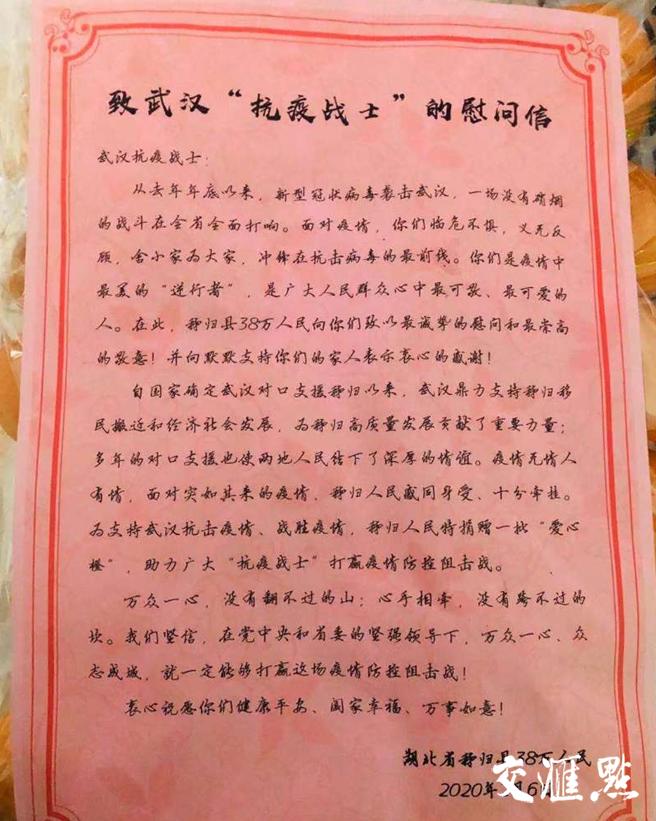 致武汉“抗疫战士”的慰问信
武汉抗疫战士：
从去年年底以来，新型冠状病毒袭击武汉，一场没有硝烟
的战斗在全省全面打响。面对疫情，你们临危不惧，义无反
顾，舍小家为大家，冲锋在抗击病毒的最前线。你们是疫情中
最美的“逆行者”，是广大人民群众心中最可敬、最可爱的
人。在此，秭归县38万人民向你们致以最诚挚的慰问和最崇高
的敬意！并向默默支持你们的家人表示衷心的感谢！
自国家确定武汉对口支援秭归以来，武汉鼎力支持秭归移
民搬迁和经济社会发展，为秭归高质量发展贡献了重要力量；
多年的对口支援也使两地人民结下了深厚的情谊。疫情无情人
有情，面对突如其来的疫情，秭归人民感同身受、十分牵挂。
为支持武汉抗击疫情、战胜疫情，秭归人民特捐赠一批“爱心
橙”，助力广大“抗疫战士”打赢疫情防控阻击战。
万众一心，没有翻不过的山；心手相牵，没有跨不过的
坎。我们坚信，在党中央和省委的坚强领导下，万众一心、众
志成城，就一定能够打赢这场疫情防控阻击战！
衷心祝愿你们健康平安、阖家幸福、万事如意！
湖北省秭归县38万人民
2020年 月6日
交汇點